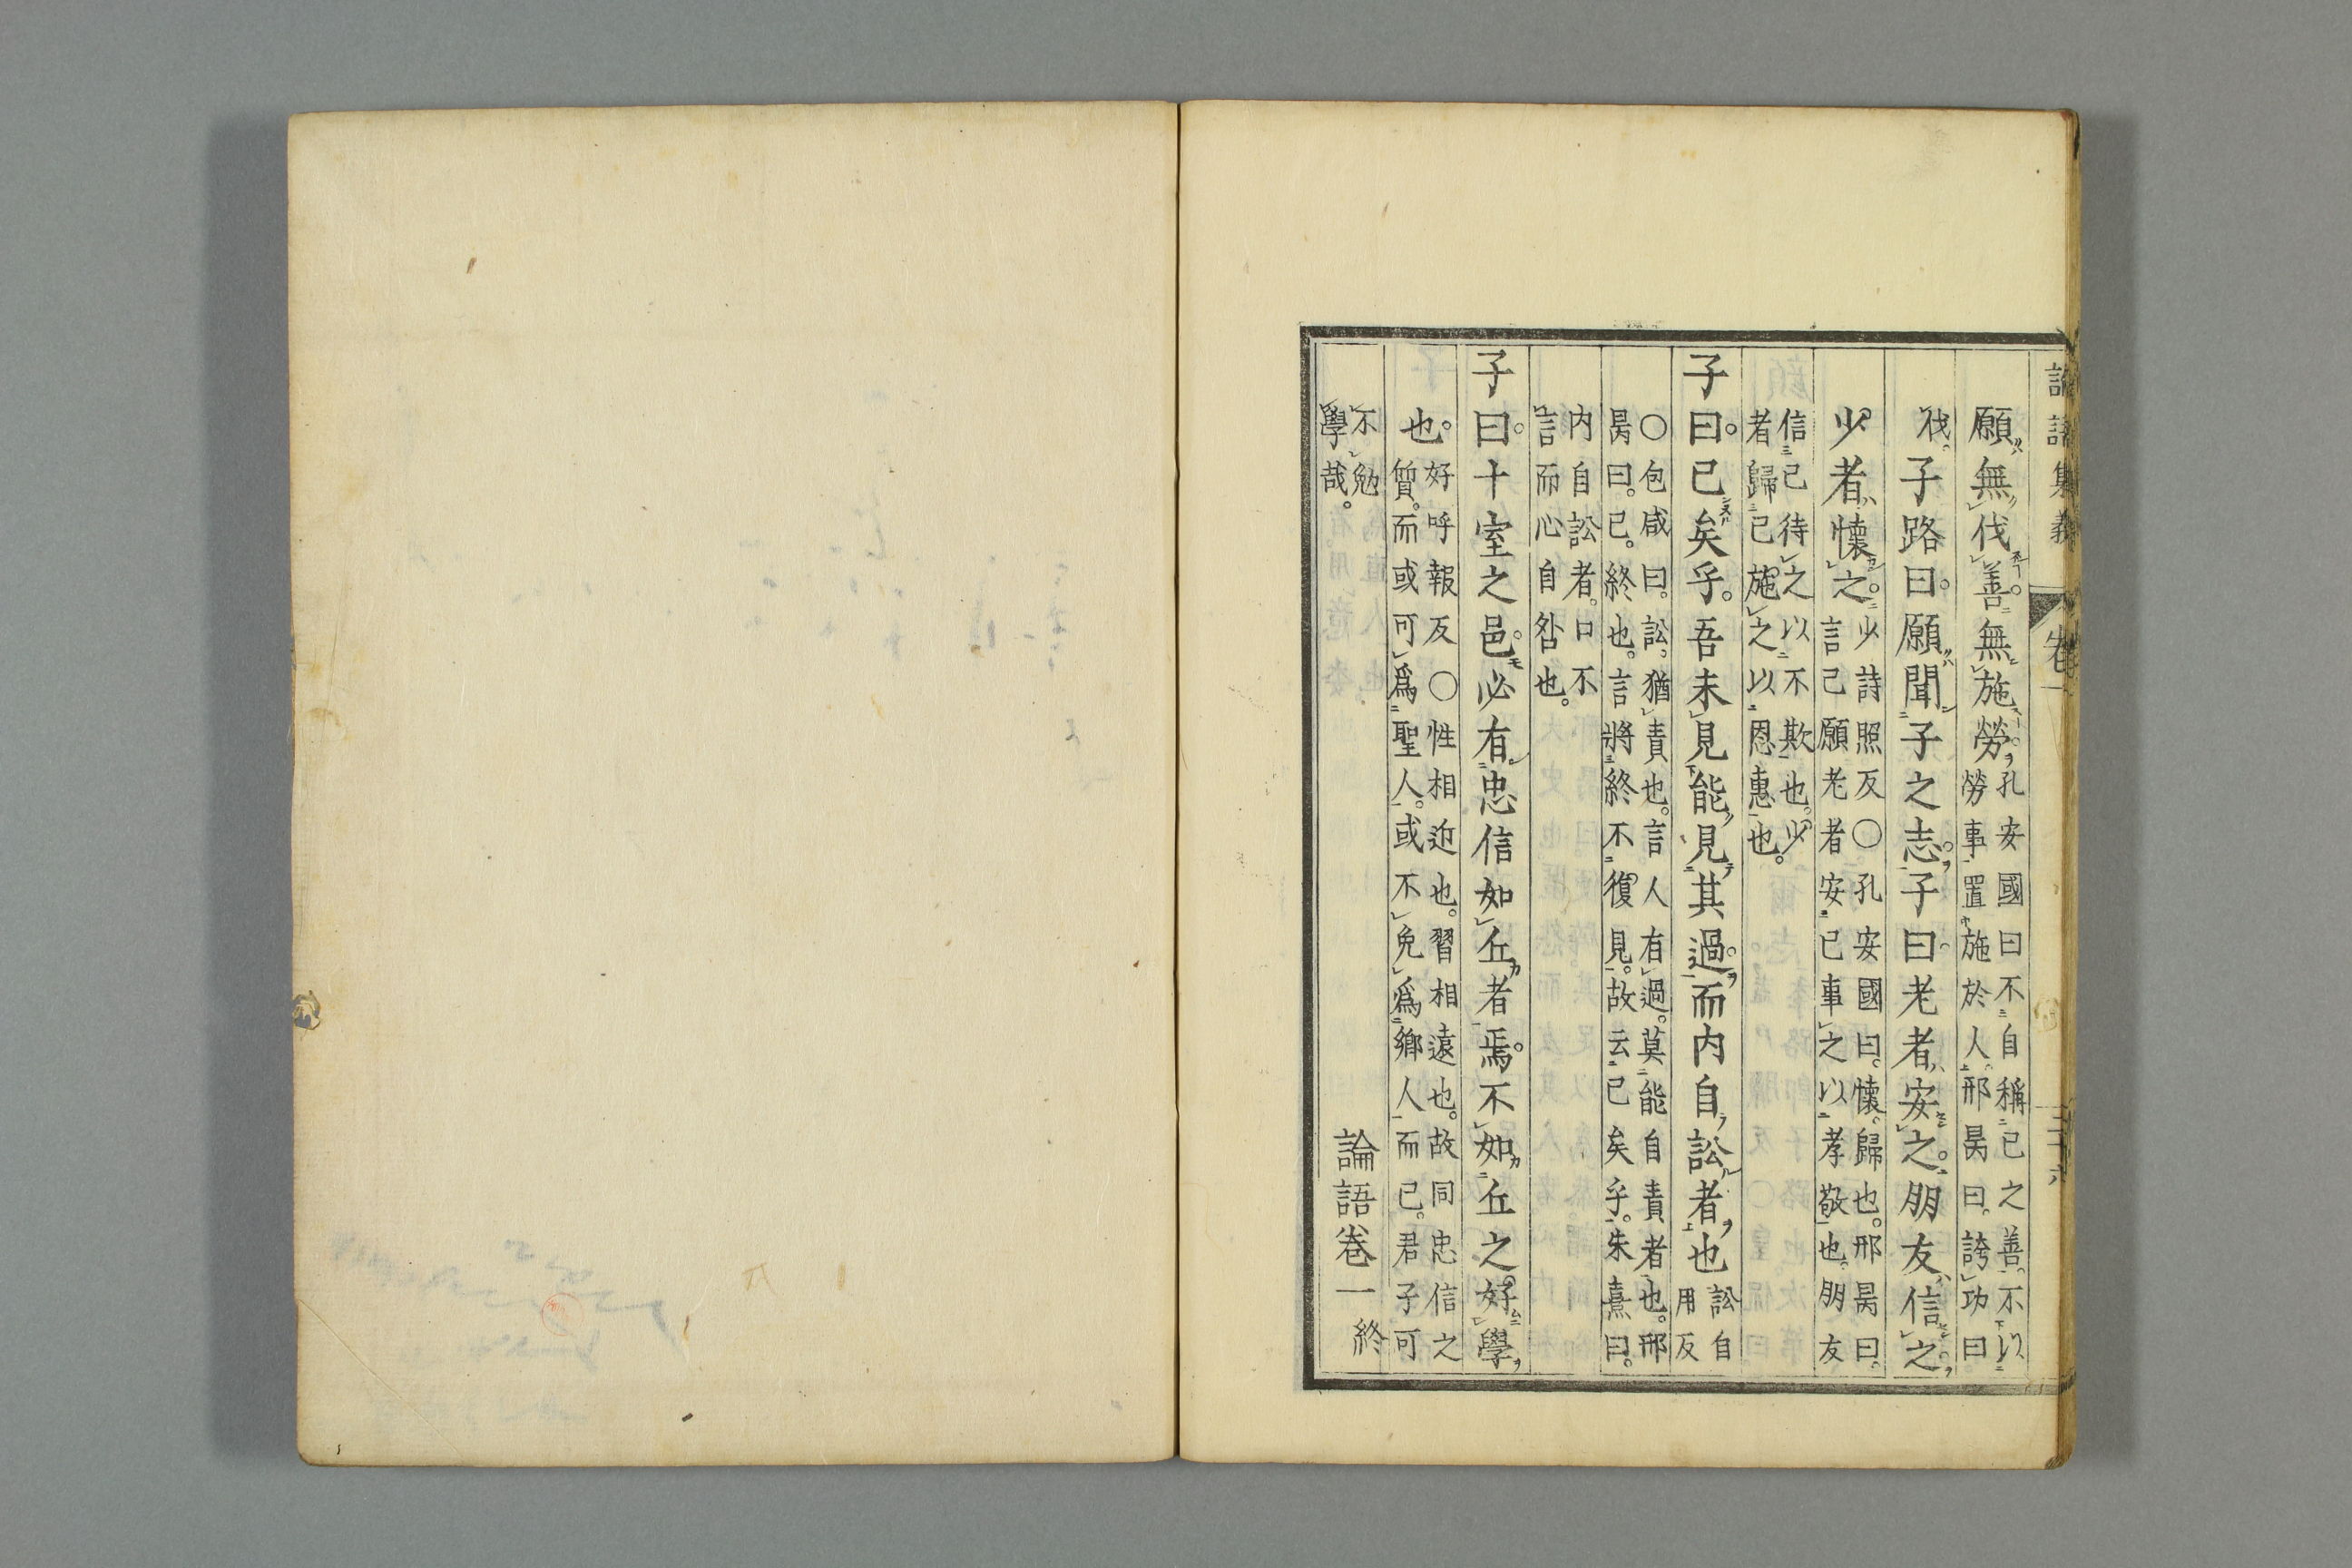 論語集義 卷一 三十六
願無伐善。無施勞。孔安國曰不自稱已之善。不以
勞事置施於人。邢昺曰。誇功曰
伐。子路曰。願聞子之志。子曰。老者安之。朋友信之。
少者懷之。少詩照反〇孔安國曰。懷。歸也。邢昺曰。
言己願老者安已事之以孝敬也。朋友
信己待之以不欺也。少
者歸己施之以恩惠也。
子曰。已矣乎。吾未見能見其過。而內自訟者也訟自
用反
〇包咸曰。訟。猶責也。言人有過。莫能自責者也。邢
昺曰。已。終也。言將終不復見。故云已矣乎。朱熹曰。
内自訟者。口不
言而心自咎也。
子曰。十室之邑。必有忠信如丘者焉。不如丘之好學
也。好呼報反〇性相近也。習相遠也。故同忠信之
質。而或可爲聖人。或不免爲鄉人而已。君子可
不勉
學哉。
論語卷一終